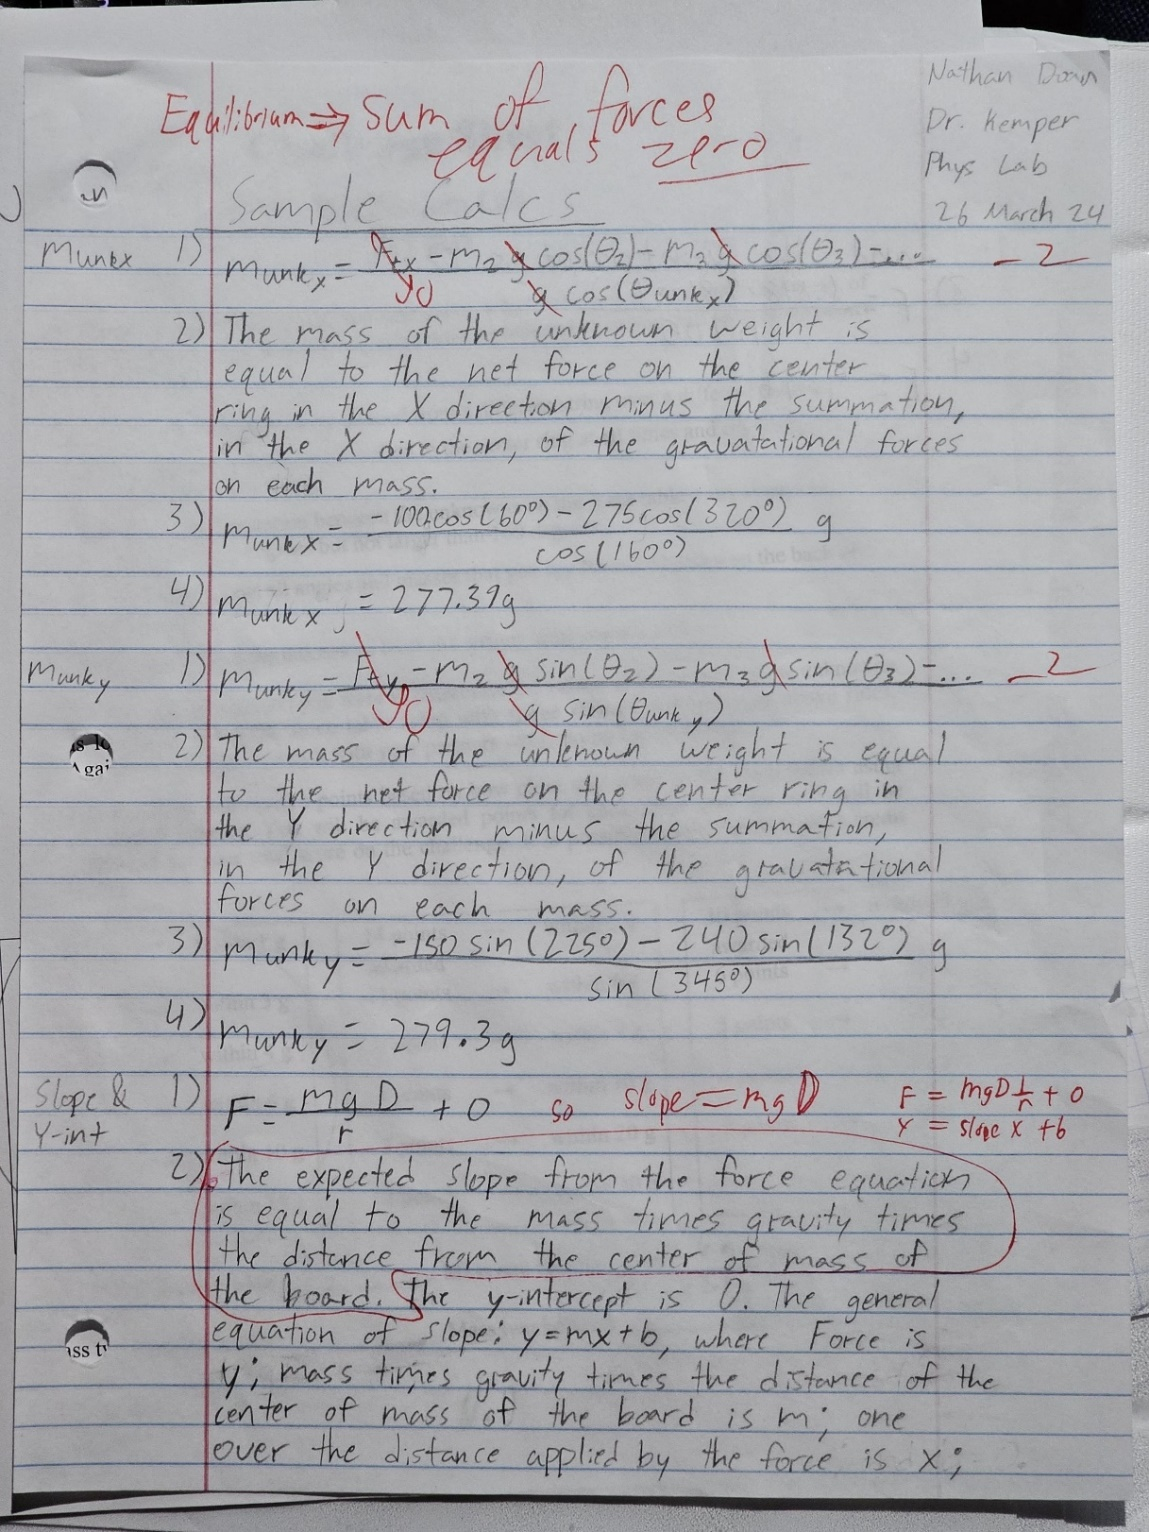 Nathan Doan
Dr. Kemper
Phys Lab
26 March 24
Equilibrium ⇒ Sum of forces
equals zero
Sample Calcs
Munkx 1) munk_x = (F_tx - m_2 g cos(θ_2) - m_3 g cos(θ_3) - ...) / (g cos(θunk_x)) -2
0
2) The mass of the unknown weight is
equal to the net force on the center
ring in the X direction minus the summation,
in the X direction, of the gravatational forces
on each mass.
3) munkx = (-100cos(60°) - 275cos(320°)) / cos(160°) g
4) munkx = 277.39g
Munky 1) munky = (F_ty - m_2 g sin(θ_2) - m_3 g sin(θ_3) - ...) / (g sin(θunk_y)) -2
0
2) The mass of the unknown weight is equal
to the net force on the center ring in
the Y direction minus the summation,
in the Y direction, of the gravatational
forces on each mass.
3) munky = (-150 sin(225°) - 240 sin(132°)) / sin(345°) g
4) munky = 279.3g
Slope & Y-int 1) F = mgD/r + 0 so slope = mgD
F = mgD 1/r + 0
Y = slope x + b
2) The expected slope from the force equation
is equal to the mass times gravity times
the distance from the center of mass of
the board. The y-intercept is 0. The general
equation of slope: y=mx+b, where Force is
y; mass times gravity times the distance of the
center of mass of the board is m; one
over the distance applied by the force is x;